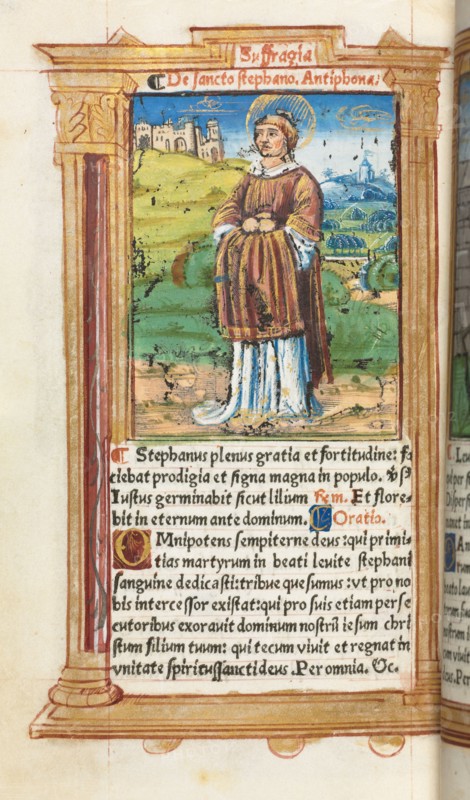 Suffragia
De sancto stephano. Antiphona.
Stephanus plenus gratia et fortitudine: fa
tiebat prodigia et signa magna in populo. ℣ ps
Iustus germinabit sicut lilium Rem. Et flore-
bit in eternum ante dominum. Oratio.
OMnipotens sempiterne deus: qui primi-
tias martyrum in beati levite stephani
sanguine dedicasti: tribue quesumus: vt pro no
bis intercessor existat: qui pro suis etiam perse
cutoribus exoravit dominum nostrū iesum chri
stum filium tuum: qui tecum viuit et regnat in
vnitate spiritussancti deus. Per omnia. &c.